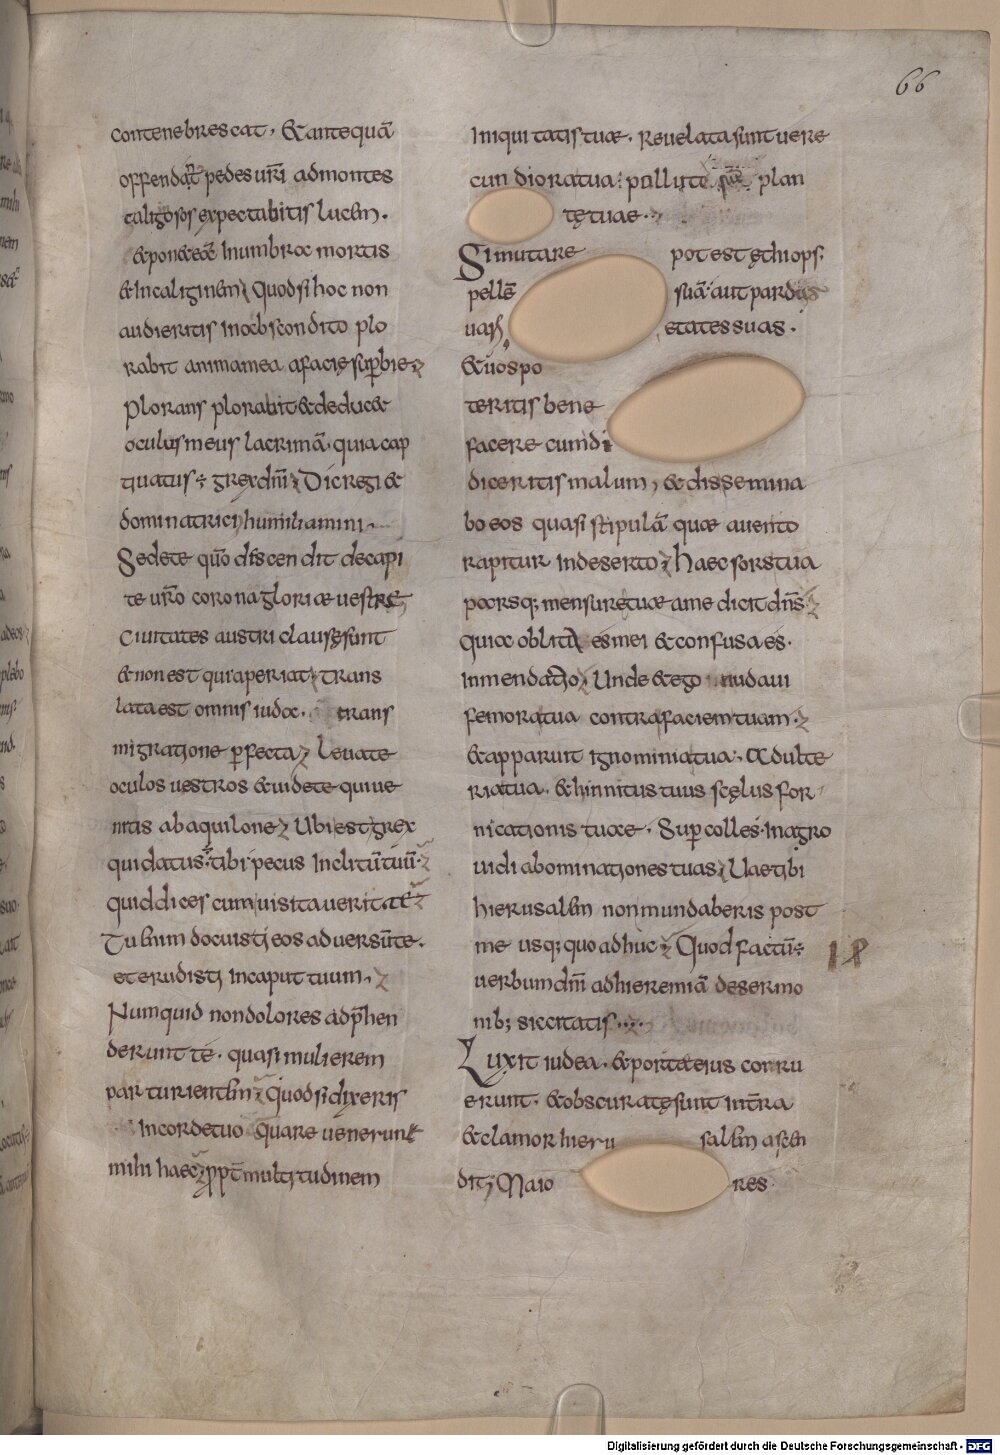 66
contenebrescat. & antequā
offendat pedes ur̄i ad montes
caligosos expectabitis lucem.
& pon& eā In umbrα mortis
& In caliginem; Quod si hoc non
audieritis In abscondito plo
rabit anima mea a facie sup̄bię;
Plorans plorabit & deduc&
oculus meus lacrimā. quia cap
tiuatus ÷ grex dn̄i; Dic regi &
dominatrici humiliamini
Sedete qūo discendit de capi
te ur̄o corona gloriæ uestrę;
Ciuitates austri clausę sunt
& non est qui aperiat; Trans
lata est omnis iuda. trans
migratione p̄fecta; Leuate
oculos uestros & uidete qui ue
nitis ab aquilone; Ubi est grex
qui datus ÷ tibi pecus Inclitū tuū;
quid dices cum uisitauerit te;
Tu enim docuisti eos aduersū te.
et erudisti In caput tuum;
Numquid non dolores adp̄hen
derunt te. quasi mulierem
parturientem; Quod si dixeris
In corde tuo Quare uenerunt
mihi haec; propt̄ multitudinem
Iniquitatis tuæ. Reuelata sunt uere
cundiora tua: pollutę sunt plan
tę tuae.
Si mutare potest ęthiops
pellē suā. aut pardus
uari etates suas.
& uos po
teritis bene
facere cum di
diceritis malum, & dissemina
bo eos quasi stipulā quæ a uento
rapitur In deserto; Haec sors tua
parsq; mensurę tuæ a me dicit dn̄s;
Quiα oblita es mei & confusa es.
In mendatio; Unde & ego nudaui
femora tua contra faciem tuam;
& apparuit ignominia tua. Adulte
ria tua. & hinnitus tuus scęlus for
nicationis tuæ. Sup̄ colles In agro
uidi abominationes tuas; Uae tibi
hierusalem non mundaberis post
me usq; quo adhuc; Quod factū ÷
uerbum dn̄i ad hieremiā de sermo
nib; siccitatis
Luxit iudea. & portæ eius corru
erunt. & obscuratę sunt in tr̄a
& clamor hieru salem ascen
dit; Maio res
Digitalisierung gefördert durch die Deutsche Forschungsgemeinschaft - DFG